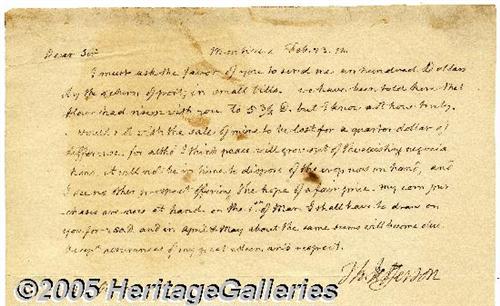 Dear Sir Monticello Feb. 23. 14.
I must ask the favor of you to send me an hundred Dollars
by the return of post, in small bills. we have been told here that
flour had risen with you to 5 3/4 D. but I know not how truly.
would not wish the sale of mine to be lost for a quarter dollar of
difference. for altho' I think peace will grow out of the existing negocia
tions, it will not be in time to dispose of the crop now in hand, and
I see no other prospect offering the hope of a fair price. my corn pur
chases are near at hand. on the 1st of Mar. I shall have to draw on
you for 280 D. and in April & May about the same sums will become due.
Accept assurances of my great esteem and respect.
Th: Jefferson
©2005 HeritageGalleries